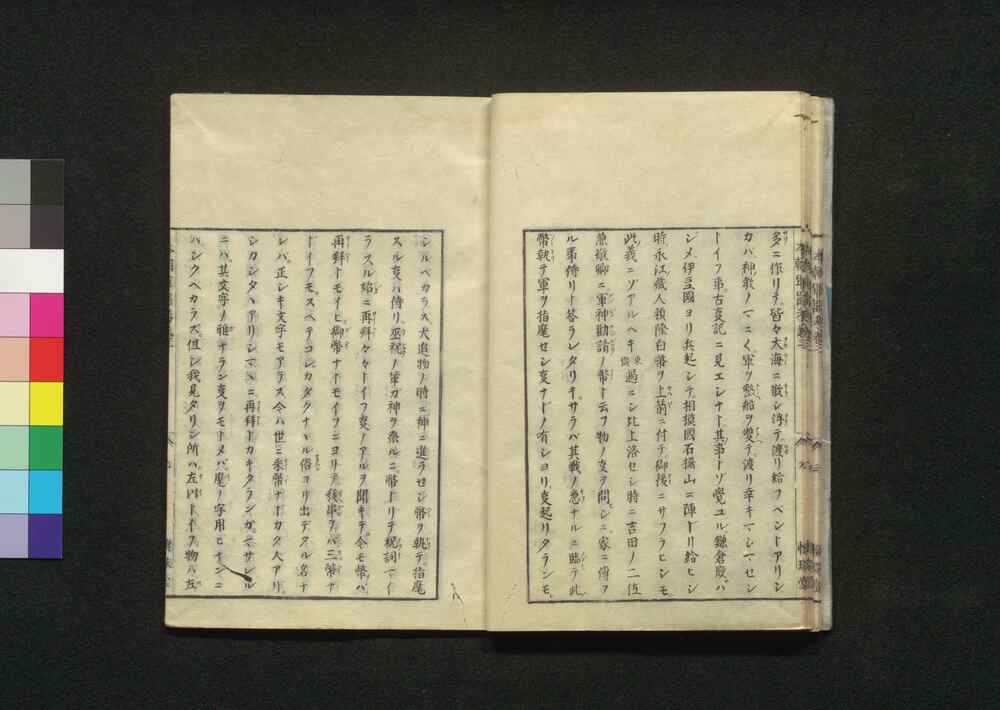 多ニ作リテ皆々大海ニ散シ浮テ渡リ給フヘシトアリシ
カバ神教ノマニ〳〵軍ヲ整船ヲ雙テ渡リ幸キマシマセシ
トイフ事古変記ニ見エシナト其事トゾ覺ユル鎌倉殿ハ
シメ伊豆國ヨリ兵起シテ相模國石橋山ニ陣トリ給ヒシ
時永江藏人後隆白幣ヲ上箭ニ付テ御後ニサフラヒシモ
此義ニゾアルヘキ 過ニシ比上洛セシ時ニ吉田ノ二位
兼敬卿ニ軍神勸請ノ幣ト云フ物ノ変ヲ問シニ家ニ傳フ
ル事侍リト答ラレタリキサラバ其戰ノ急ナルニ臨テ此
幣執テ軍ヲ指麾セシ変ナドノ有シヨリ変起リタランモ
シルベカラス犬追物ノ時ニ神ニ進ラセシ幣ヲ執テ指麾
スル変ハ侍リ巫祝ノ輩カ神ヲ祭ルニ幣トリテ祝詞マイ
ラスル始ニ再拜々々トイフ変ノアルヲ聞キテ今モ幣ハ
再拜トモイヒ御幣ナトモイフニヨリテ後事ヲハ三幣ナ
トイフモスヘテコシカタクナヽル俗ヨリ出デタル名ナ
レバ正シキ文字モアラス今ハ世ニ采幣ナトカク人アリ
シカシタヽアリシマヽニ再拜トカキタランガマサレル
ニハ其文字ノ雅ナラン変ヲモトメバ麾ノ字用ヒナンニ
ハシクベカラズ但シ我見タリシ所ハ左冊トイフ物ハ左